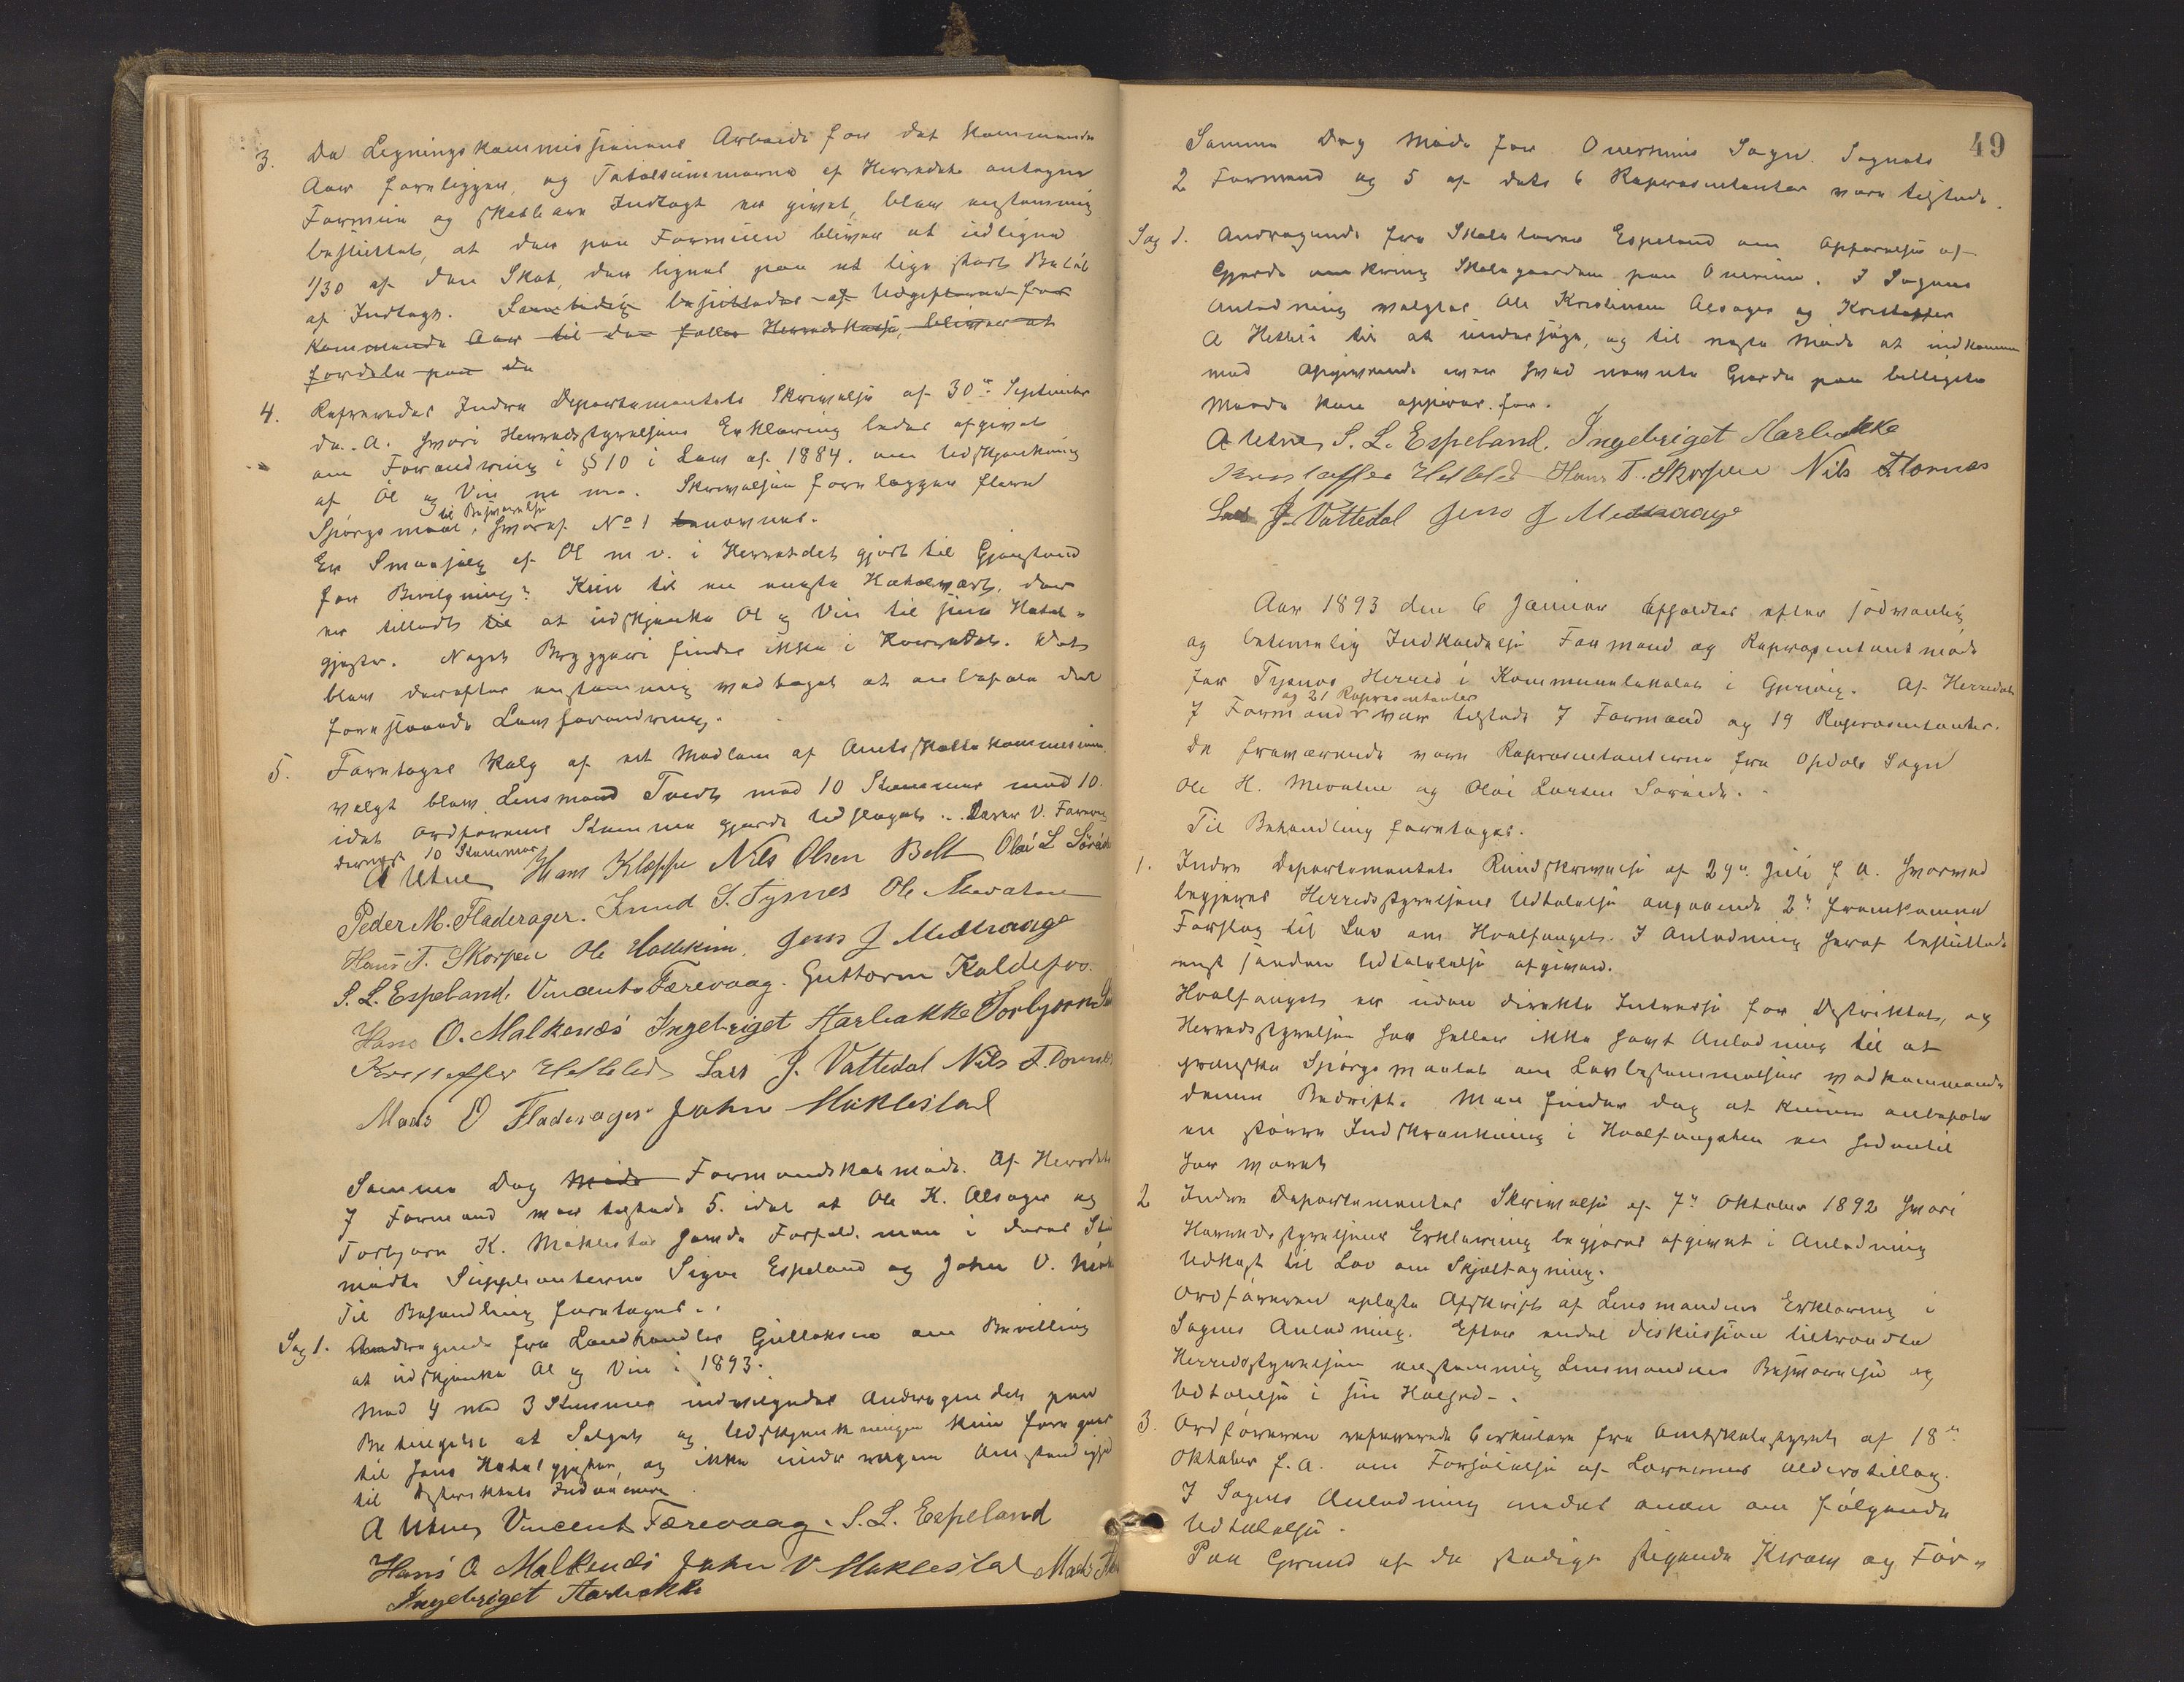 3. Da Ligningskommissionens Arbeide for det kommende
Aar foreligger, og Totalsummerne af Herredets antagne
Formue og skatbare Indtægt er givet, blev enstemmig
besluttet, at der paa Formuen bliver at udligne
1/30 af den Skat, der lignes paa et lige stort Beløb
af Indtægt. Samtidig besluttedes at Udgifterne for
kommende Aar til den fælles Herredskasse, bliver at
fordele paa de
4. Refereredes Indre Departementets Skrivelse af 30te September
d. A. hvori Herredsstyrelsens Erklæring bedes afgivet
om Forandring i § 10 i Lov af 1884. om Udskjænkning
af Øl og Vin m m. Skrivelsen forelægger flere
til Besvarelse
Spørgsmaal, hvoraf No 1 nævnes.
Er Smaasalg af Øl m v. i Herredet gjort til Gjenstand
for Bevilgning? Kun til en eneste Hotelvært, der
er tilladt til at udskjænke Øl og Vin til sine Hotel-
gjester. Noget Bryggeri findes ikke i Herredet. Det
blev derefter enstemmig vedtaget at anbefale den
foreslaaede Lovforandring.
5. Foretoges Valg af et Medlem af Amtsskattekommissionen.
valgt blev Lensmand Tvedt med 10 Stemmer mod 10.
idet Ordførerens Stemme gjorde Udslaget. Lærer V. Færevaag
dernæst 10 Stemmer
A Utne Hans Klæppe Nils Olsen Belt Olai L Søreide
Peder M. Fladerager. Knud S. Tysnes Ole Mevatne
Hans T. Skorpen Ole Jens J Medhaaug
S. L. Espeland. Vincents Færevaag. Guttorm Kaldefos.
Hans O. Malkenæs Ingebriget Aarbakke Torbjørn
Kristoffer Hetleli Lars J. Vattedal Nils T. Lønnes
Mads O Fladerager John Møklestad
Samme Dag Møde Formandskabsmøde. Af Herredets
7 Formænd var tilstede 5. idet at Ole K. Alsager og
Torbjørn K. Møklestad havde Forfald. men i deres Sted
mødte Suppleanterne Sigve Espeland og John V. Møk
Til Behandling foretoges.
Sag 1. Andragende fra Landhandler Gulleksen om Bevilling
at udskjænke Øl og Vin i 1893.
Med 4 mod 3 Stemmer indvilgedes Andragendet paa
Betingelse at Salget og Udskjænkningen kun foregaar
til hans Hotelgjester, og ikke under nogen Omstændighed
til Distriktets Indvaanere.
A Utne Vincent Færevaag. S. L. Espeland
Hans O Malkenæs John V Møklestad Mads
Ingebriget Aarbakke
49
Samme Dag Møde for Onarheims Sogn. Sognets
2 Formænd og 5 af dets 6 Repræsentanter vare tilstede.
Sag 1. Andragende fra Skolelærer Espeland om Opførelse af
Gjerde omkring Skolegaarden paa Onarheim. I Sagens
Anledning valgtes Ole Kristensen Alsager og Kristoffer
A Hetleli til at undersøge, og til næste Møde at indkomme
med Opgivende over hvad nævnte Gjerde paa billigste
Maade kan opføres for.
A Utne, S. L. Espeland. Ingebriget Aarbakke
Kristoffer Hetleli Hans T. Skorpen Nils T Lønnes
Lars J. Vattedal Jens J Medhaaug
Aar 1893 den 6 Januar afholdtes efter sedvanlig
og betimelig Indkaldelse Formand og Repræsentantmøde
for Tysnes Herred i Kommunelokalet i Gjersvig. Af Herredets
og 21 Repræsentanter
7 Formænd var tilstede 7 Formænd og 19 Repræsentanter.
De fraværende vare Repræsentanterne fra Opdals Sogn
Ole H. Mevatne og Olai Larsen Søreide.
Til Behandling foretoges.
1. Indre Departementets Rundskrivelse af 29de Juli f A. hvorved
begjæres Herredsstyrelsens Udtalelse angaaende 2de fremkomne
Forslag til Lov om Hvalfangst. I Anledning heraf besluttedes
enst saadan Udtalelse afgiven.
Hvalfangst er uden direkte Interesse for Distriktet, og
Herredsstyrelsen har heller ikke havt Anledning til at
granske Spørgsmaalet om Lovbestemmelser vedkommende
denne Bedrift. Man finder dog at kunne anbefale
en større Indskrænkning i Hvalfangsten en hidentil
har været
2 Indre Departementets Skrivelse af 7de Oktober 1892 hvori
Herredsstyrelsens Erklæring begjæres afgivet i Anledning
Udkast til Lov om Skjeltagning.
Ordføreren oplæste Afskrift af Lensmandens Erklæring i
Sagens Anledning. Efter endel Diskussion tiltraadte
Herredsstyrelsen enstemmig Lensmandens Besvarelse og
Udtalelse i sin Helhed.
3. Ordføreren refererede Cirkulære fra Amtsskolestyret af 18de
Oktober f. A. om Forhøielse af Lærernes Alderstillæg.
I Sagens Anledning enedes man om følgende
Udtalelse.
Paa Grund af de stadige stigende Krav og For-